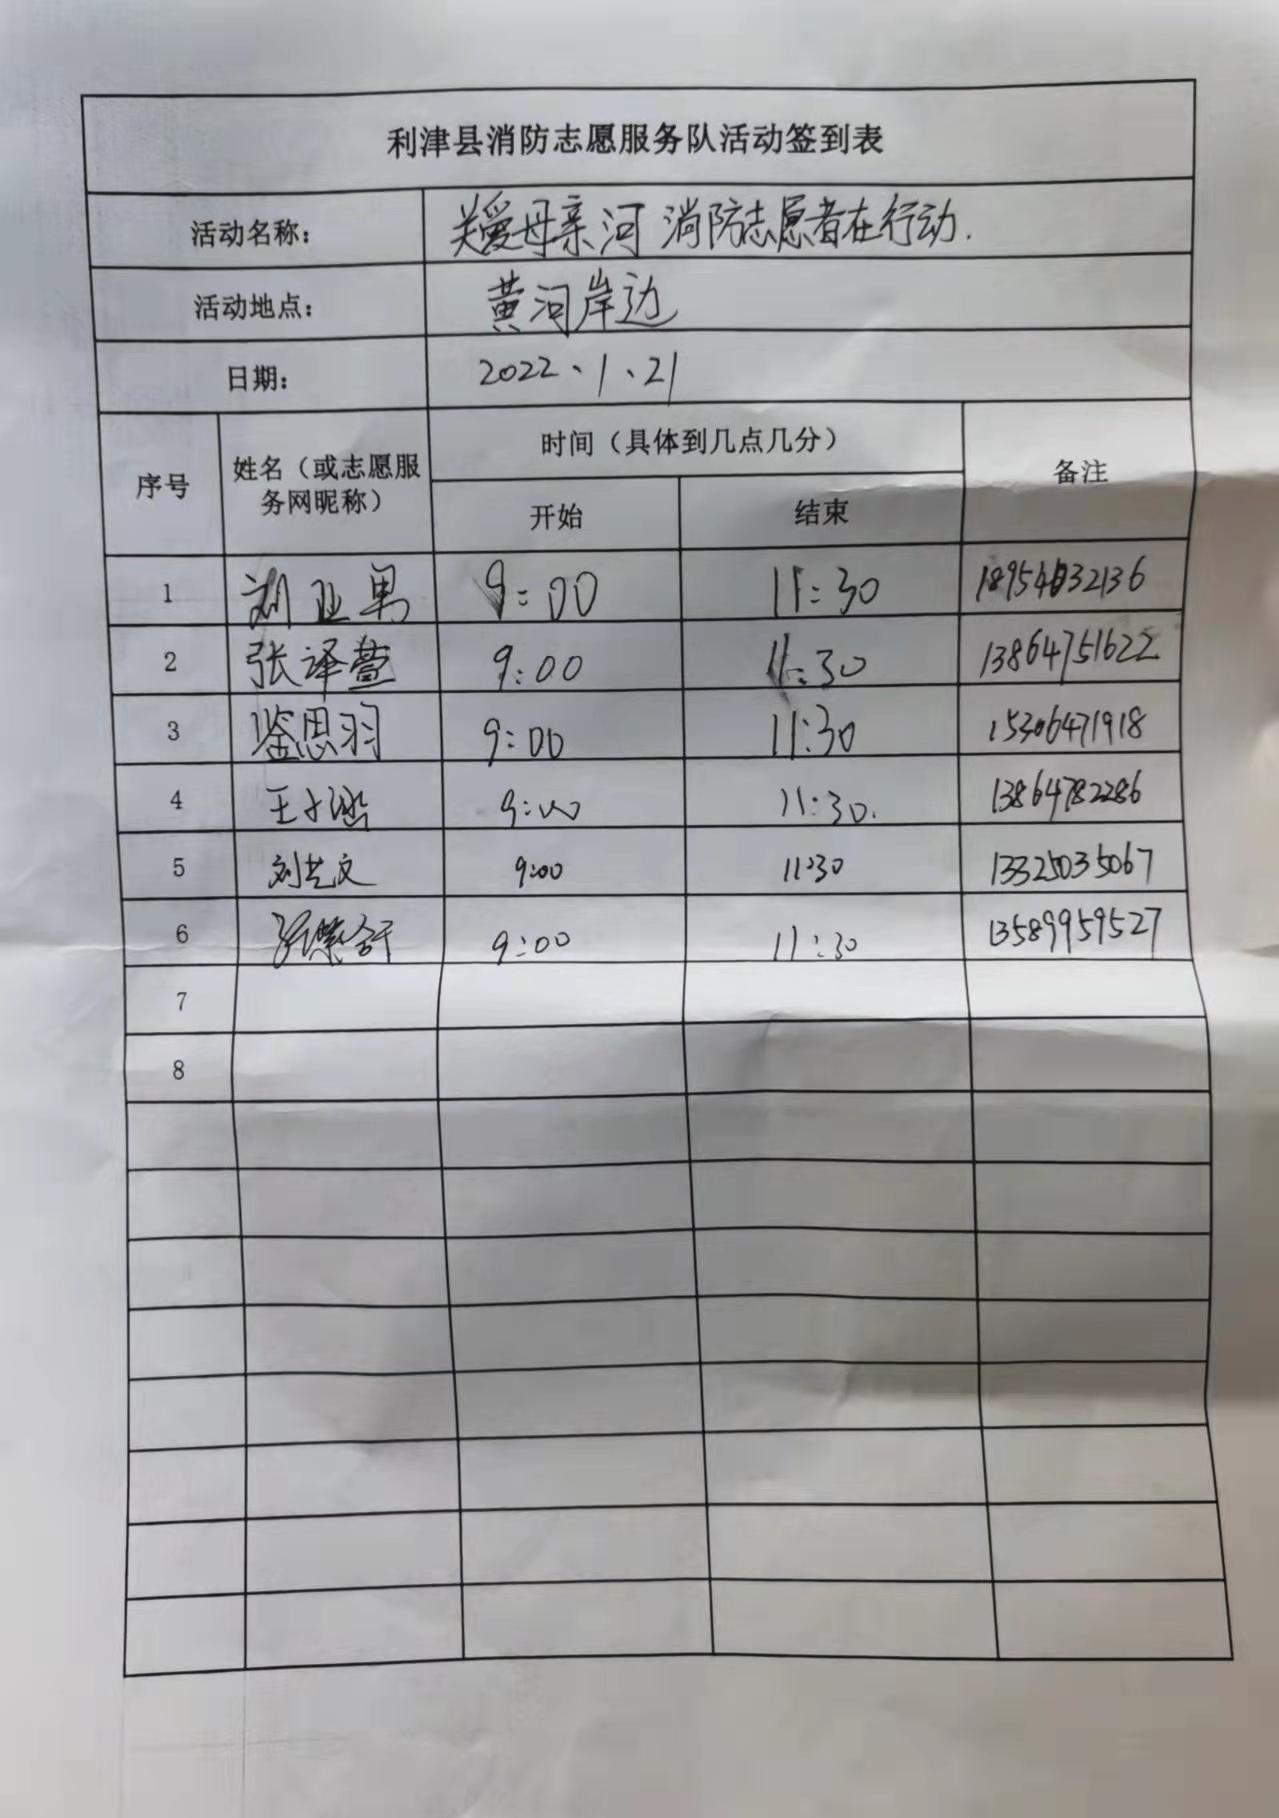 利津县消防志愿服务队活动签到表
活动名称: 关爱母亲河 消防志愿者在行动.
活动地点: 黄河岸边
日期: 2022、1、21
序号 姓名（或志愿服务网昵称） 时间（具体到几点几分） 备注
开始 结束
1 刘亚男 9:00 11:30
2 张译萱 9:00 11:30 13864751622
3 鉴思羽 9:00 11:30 15306471918
4 9:00 11:30. 13864782286
5 刘艺文 9:00 11:30 13325035067
6 9:00 11:30 13589959527
7
8